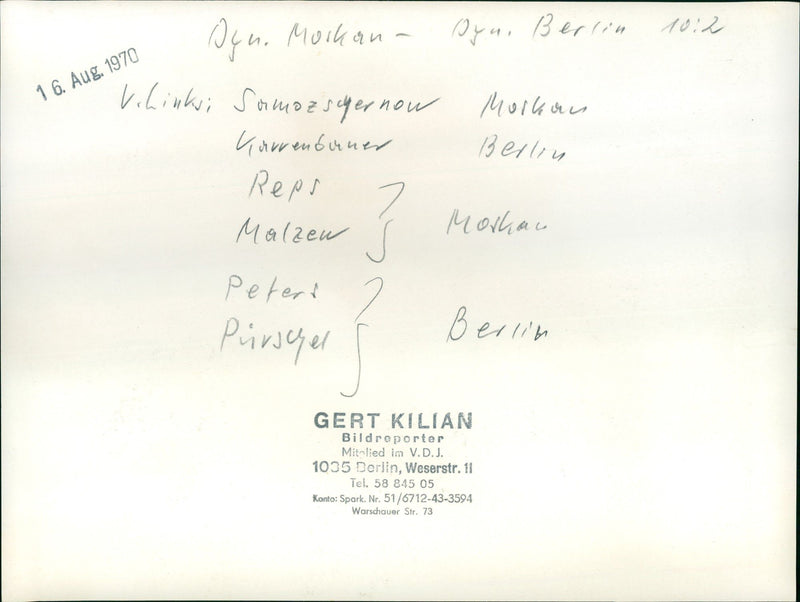 Dyn. Moskau - Dyn. Berlin 10:2
16. Aug. 1970
V. Links: Samozschernow Moskau
Karrenbauer Berlin
Reps
Malzew } Moskau
Peters
Pürschel } Berlin
GERT KILIAN
Bildreporter
Mitglied im V.D.J.
1035 Berlin, Weserstr. 11
Tel. 58 845 05
Konto: Spark. Nr. 51/6712-43-3594
Warschauer Str. 73